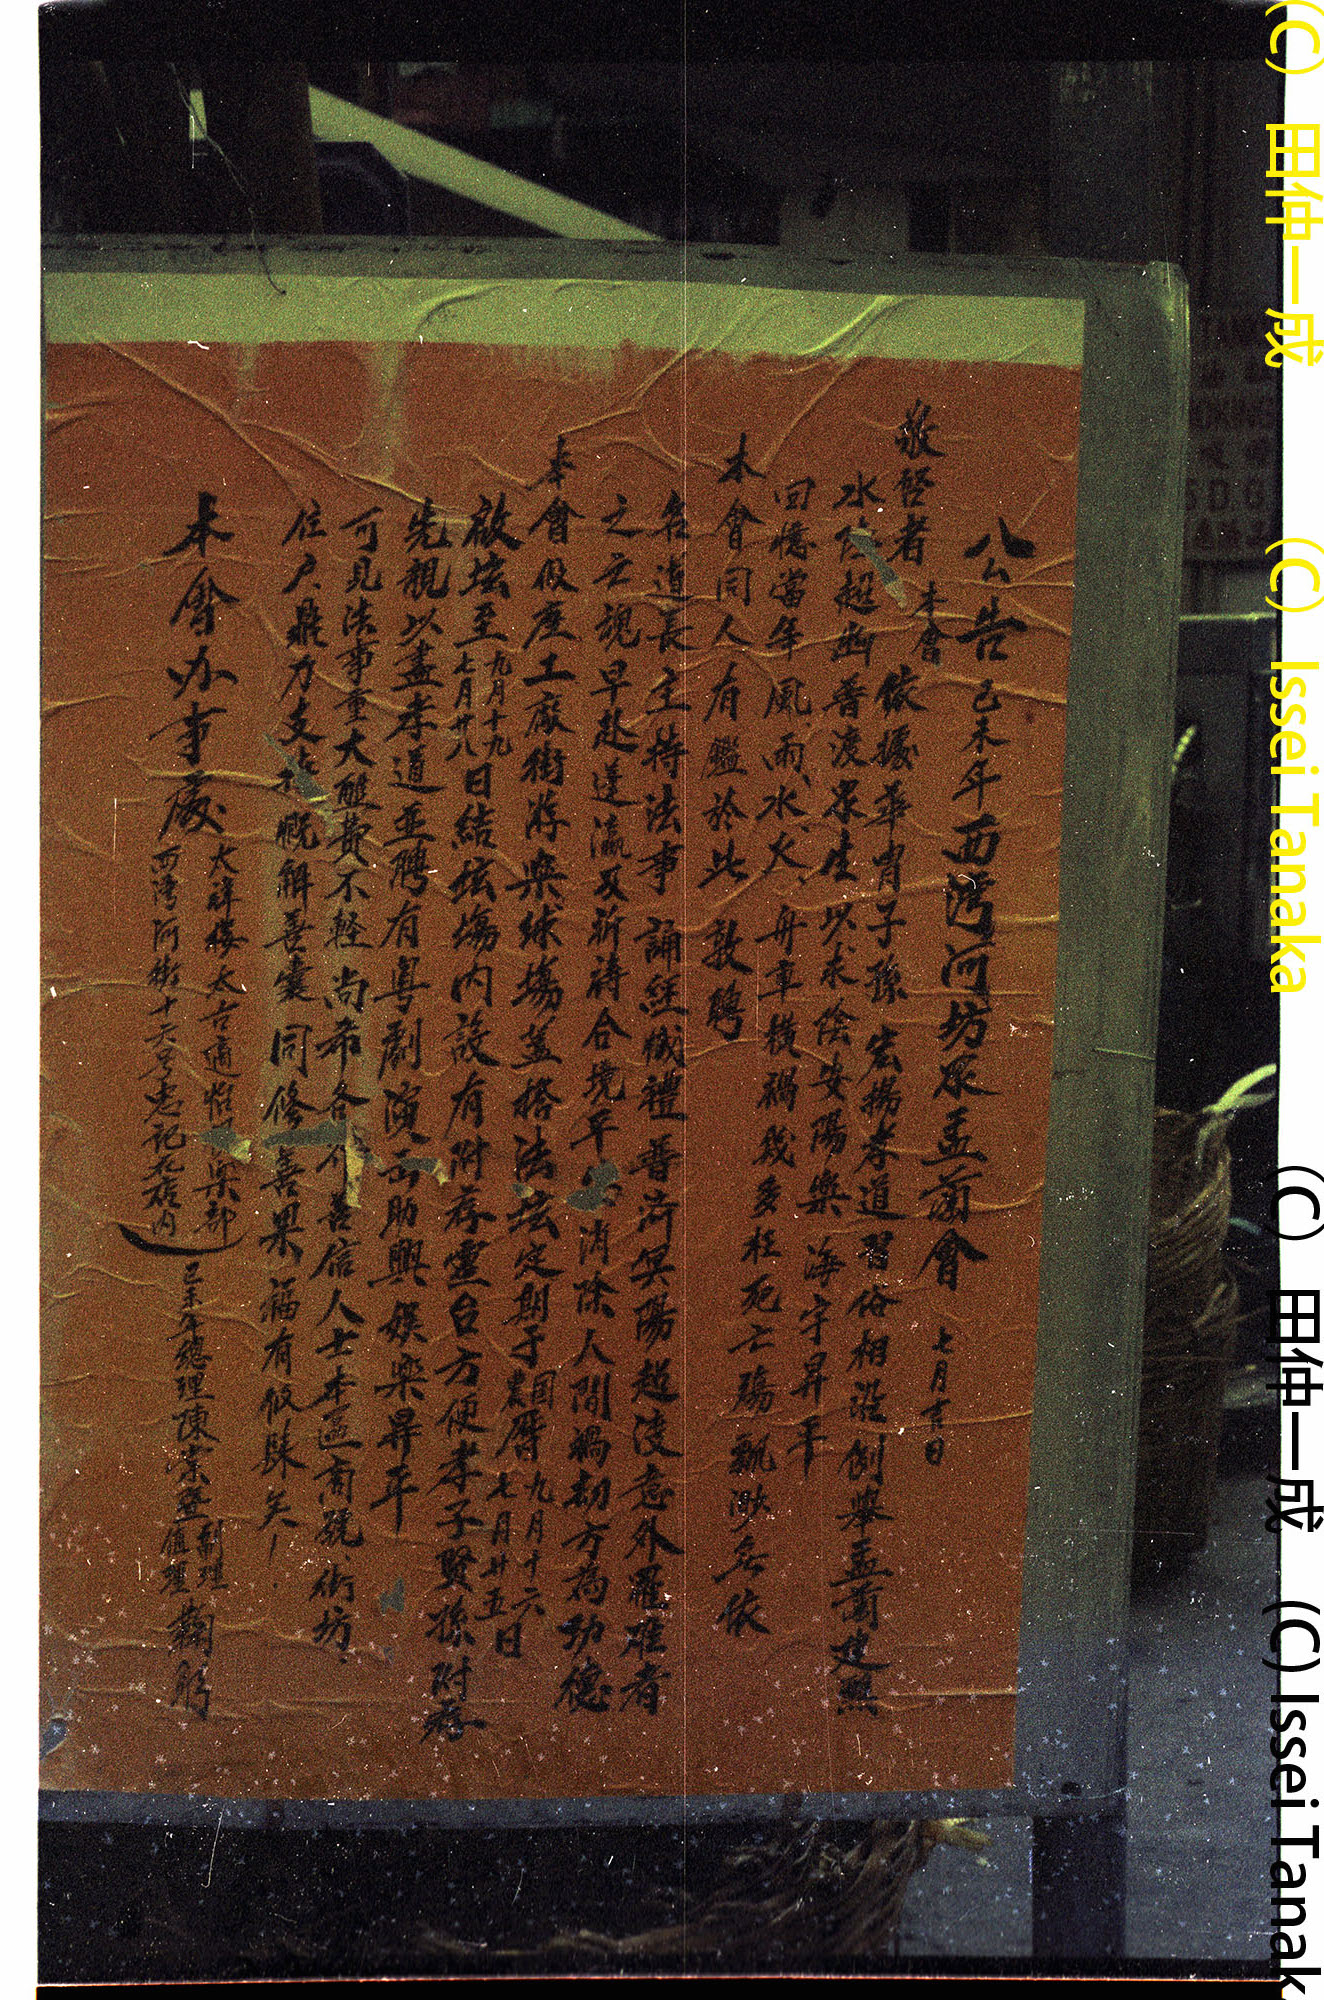 公告 己未年西灣河坊眾盂蘭會 七月十日
敬啓者 本會 依據華胄子孫 宏揚孝道習俗相沿 例舉盂蘭建醮
水陸超幽普渡眾生以求陰安陽樂 海宇昇平
回憶當年風雨、水火、舟車橫禍幾多枉死亡殤飄渺無依
本會同人有鑑於此 敦聘
名道長主持法事 誦經懺禮普濟冥陽超凌意外羅难者
之亡魂早赴蓬瀛及祈禱合境平 消除人間禍劫方為功德
本會假座工廠街游樂球場蓋搭法坛定期于國農曆九月十六七月廿五日
啟坛至九月十九七月廿八日結坛塲内設有附荐靈台方便孝子賢孫附荐
先親以盡孝道並聘有粤劇演出助興 娛樂昇平
可見法事重大醮費不輕 尚希各 善信人士本區商號、街坊、
住户鼎力支持 慨解善囊 同修善果 福有攸歸矣！
本會办事處 太祥樓太古 樂部 西灣河街十六号忠記
己未年總理陳 副理 值理 鞠躬
(C) 田仲一成 (C) Issei Tanaka
(C) 田仲一成 (C) Issei Tanak